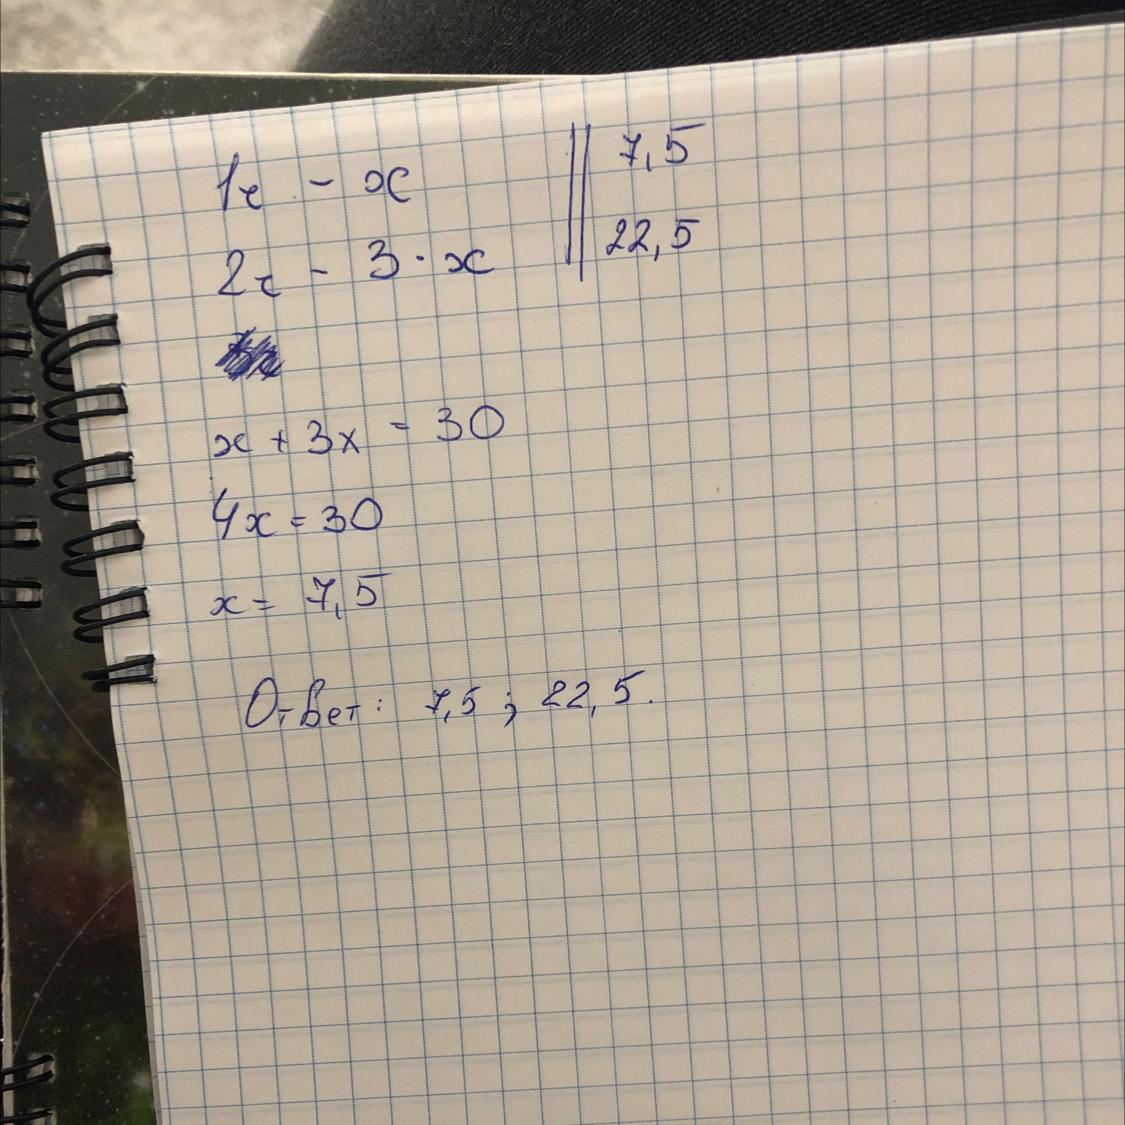 1ч - x || 7,5
2ч - 3 · x || 22,5
x + 3x = 30
4x = 30
x = 7,5
Ответ: 7,5 ; 22,5.